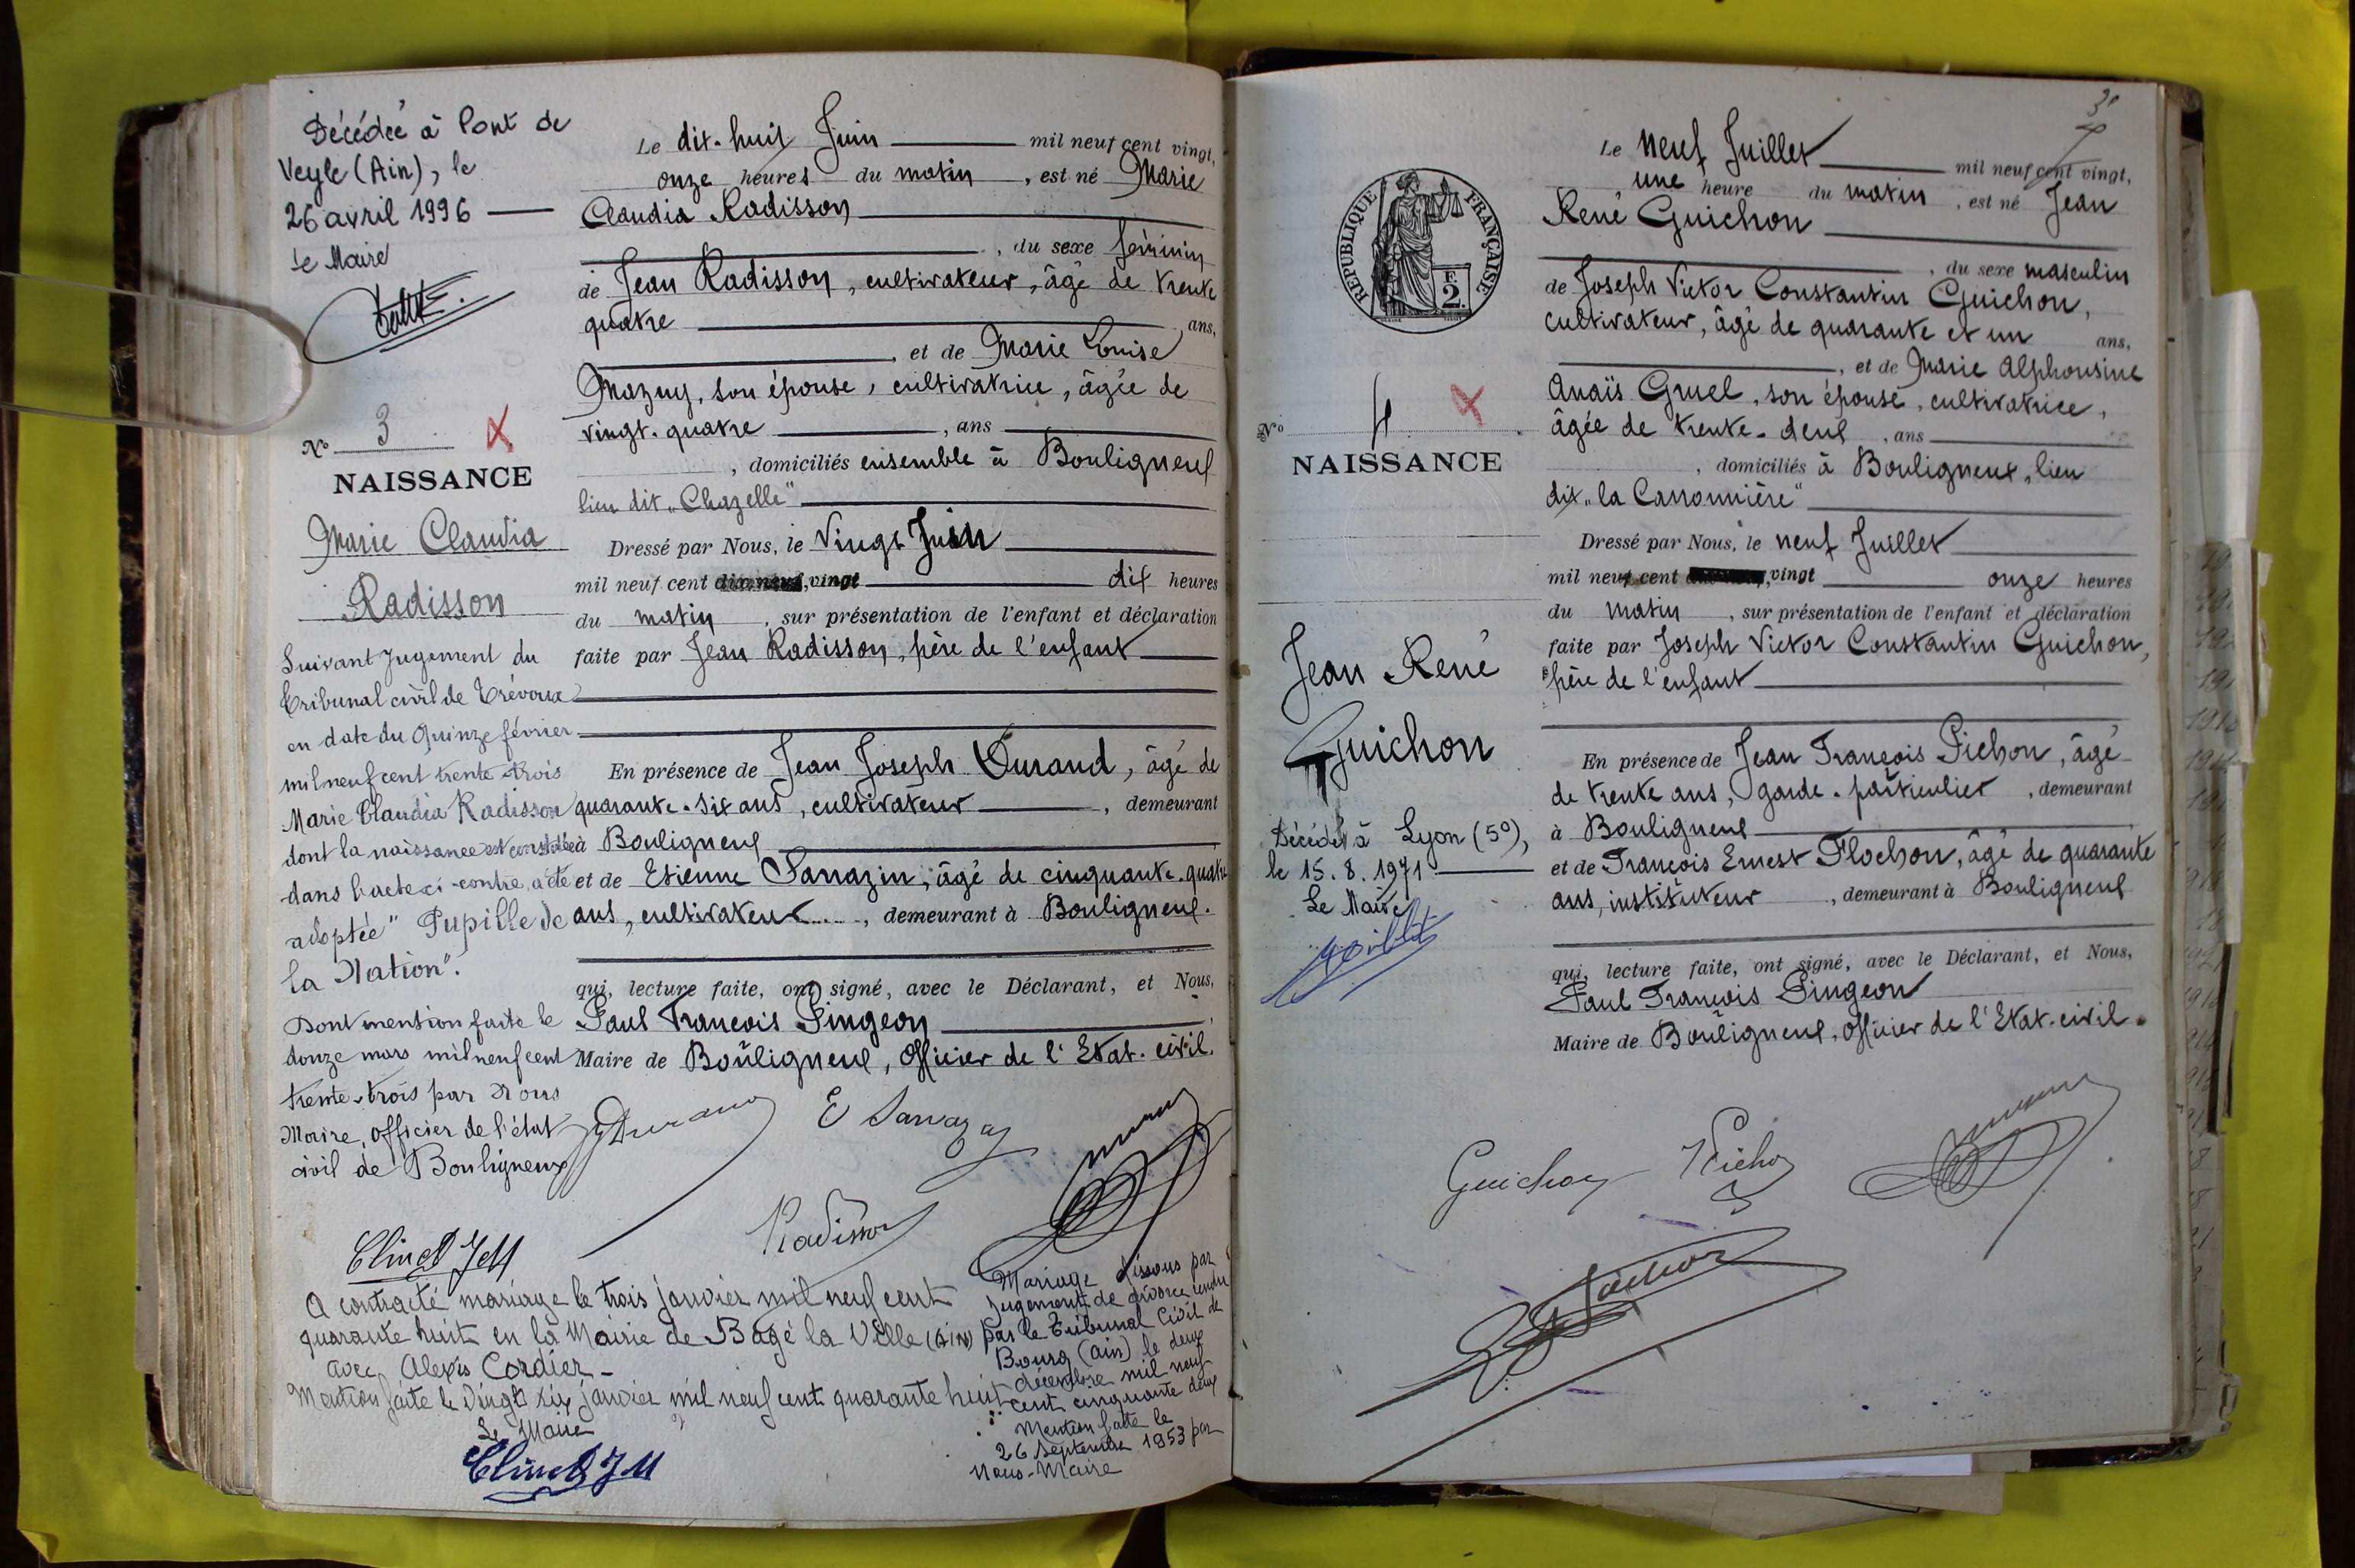 Décédée à Pont de
Veyle (Ain), le
26 avril 1996
Le Maire
N° 3
NAISSANCE
Marie Claudia
Radisson
Suivant Jugement du
Tribunal civil de Trévoux
en date du Quinze février
mil neuf cent trente-trois
Marie Claudia Radisson
dont la naissance est constatée
dans l'acte ci-contre, a été
adoptée "Pupille de
la Nation".
Dont mention faite le
douze mars mil neuf cent
trente-trois par nous
Maire, officier de l'état
civil de Bouligneux
Le dix-huit Juin mil neuf cent vingt,
onze heures du matin, est né Marie
Claudia Radisson
, du sexe féminin
de Jean Radisson, cultivateur, âgé de trente
quatre ans,
, et de Marie Louise
Mazuy, son épouse, cultivatrice, âgée de
vingt-quatre, ans
, domiciliés ensemble à Bouligneux
lieu dit "Chazelle"
Dressé par Nous, le Vingt Juin
mil neuf cent dix-neuf, vingt dix heures
du matin, sur présentation de l'enfant et déclaration
faite par Jean Radisson, père de l'enfant
En présence de Jean Joseph Durand, âgé de
quarante-six ans, cultivateur, demeurant
à Bouligneux
et de Etienne Sarrazin, âgé de cinquante-quatre
ans, cultivateur, demeurant à Bouligneux.
qui, lecture faite, ont signé, avec le Déclarant, et Nous,
Paul François Pingeon,
Maire de Bouligneux, Officier de l'Etat-civil.
Durand
E Sarrazin
Radisson
A contracté mariage le trois janvier mil neuf cent
quarante huit en la Mairie de Bagé la Ville (Ain)
avec Alexis Cordier-
Mention faite le vingt six janvier mil neuf cent quarante huit
Le Maire
Mariage dissous par
jugement de divorce rendu
par le Tribunal Civil de
Bourg (Ain) le deux
décembre mil neuf
cent cinquante deux
Mention faite le
26 Septembre 1953 par
Nous-Maire
3
RÉPUBLIQUE FRANÇAISE
E
2.
N° 4
NAISSANCE
Jean René
Guichon
Décédé à Lyon (5°),
le 15.8.1971
Le Maire
Le neuf Juillet mil neuf cent vingt,
une heure du matin, est né Jean
René Guichon
, du sexe masculin
de Joseph Victor Constantin Guichon,
cultivateur, âgé de quarante et un ans,
, et de Marie Alphonsine
Anaïs Gruel, son épouse, cultivatrice,
âgée de trente-deux, ans
, domiciliés à Bouligneux, lieu
dit "la Canonnière"
Dressé par Nous, le neuf Juillet
mil neuf cent vingt onze heures
du matin, sur présentation de l'enfant et déclaration
faite par Joseph Victor Constantin Guichon,
père de l'enfant
En présence de Jean François Pichon, âgé
de trente ans, garde-particulier, demeurant
à Bouligneux
et de François Ernest Flochon, âgé de quarante
ans, instituteur, demeurant à Bouligneux
qui, lecture faite, ont signé, avec le Déclarant, et Nous,
Paul François Pingeon
Maire de Bouligneux, Officier de l'Etat-civil.
Guichon
Pichon